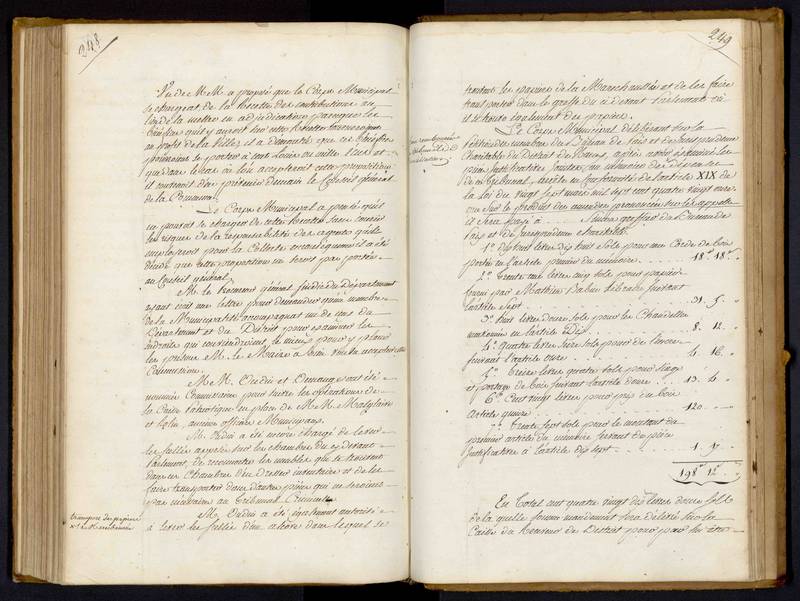 248
de M.M. a proposé que le Corps Municipal
se chargeat de la Recette des contributions au
lieu de la mettre en adjudication parceque les
qu'il y auroit sur cette Recette
au profit de la Ville; il a démontré que ce bénéfice
pourroit se porter à cent Louis ou mille Ecus et
que dans le cas où l'on accepteroit cette proposition
il faudroit en prévenir demain le Conseil général
de la Commune.
Le Corps Municipal a pensé qu'il
ne pouvoit se charger de cette Recette sans courir
les risques de la responsabilité des agents qu'elle
employeroit pour la Collecte en conséquence il a été
décidé que cette proposition ne seroit pas portée
au Conseil général.
M. le Procureur général Sindic du Département
ayant écrit une lettre pour demander qu'un membre
de la Municipalité accompagnat un de ceux du
Département et du District pour examiner les
endroits qui conviendroient le mieux pour y placer
les prisons M. le Maire a bien voulu accepter cette
Commission.
M.M. et ont été
nommés Commissaires pour suivre les opérations de
la Caisse Patriotique en place de M.M.
et anciens officiers Municipaux.
M. a été encore chargé de lever
les scellés apposés sur les chambres du cy devant
Parlement, de reconnoitre les meubles qui se trouvent
dans ces Chambres d'en dresser inventaire et de les
faire transporter dans d'autres pièces qui ne seroient
pas nécessaires au Tribunal Criminel.
transport des papiers
de la Maréchaussée
M. a été également autorisé
à lever les scellés d'un endroit dans lequel se
249
trouvent les papiers de la Maréchaussée et de les faire
transporter dans le greffe du ci devant Parlement où
il se trouve également des papiers.
Le Corps Municipal délibérant sur la
pétition des membres du Bureau de Paix et de Jurisprudence
Charitable du District de Rouen, après avoir examiné les
pièces justificatives jointes au mémoire des dépenses
de ce Tribunal, arrête en conformité de l'article XIX de
la Loi du vingt sept mars mil sept cent quatre vingt onze
que sur le produit des amendes prononcées sur les appels
il sera payé à greffier du Bureau de
paix et de jurisprudence charitable
1.° dix huit livres dix huit sols pour une Corde de bois
portée en l'article premier du mémoire . . . 18 " 18 s "
2.° Trente une livres cinq sols pour papier
fourni par Mathieu libraire suivant
l'article Sept . . . 31. 5. "
3.° huit livres douze sols pour les Chandelles
mentionnées en l'article Dix . . . 8. 12. "
4.° quatre livres seize sols pour de l'encre
suivant l'article onze . . . 4. 16. "
5.° treize livres quatre sols pour sciage
et portage de bois suivant l'article douze . . . 13. 4. "
6.° Cent vingt livres pour prix du bois
article quinze . . . 120. " "
7.° Trente sept sols pour le montant du
premier article du mémoire servant de pièce
justificative à l'article dix sept . . . 1. 17. "
198 " 12 s "
En Total cent quatre vingt dix huit livres douze sols
de laquelle somme mandement sera délivré sur la
Caisse du Receveur du District pour par lui être